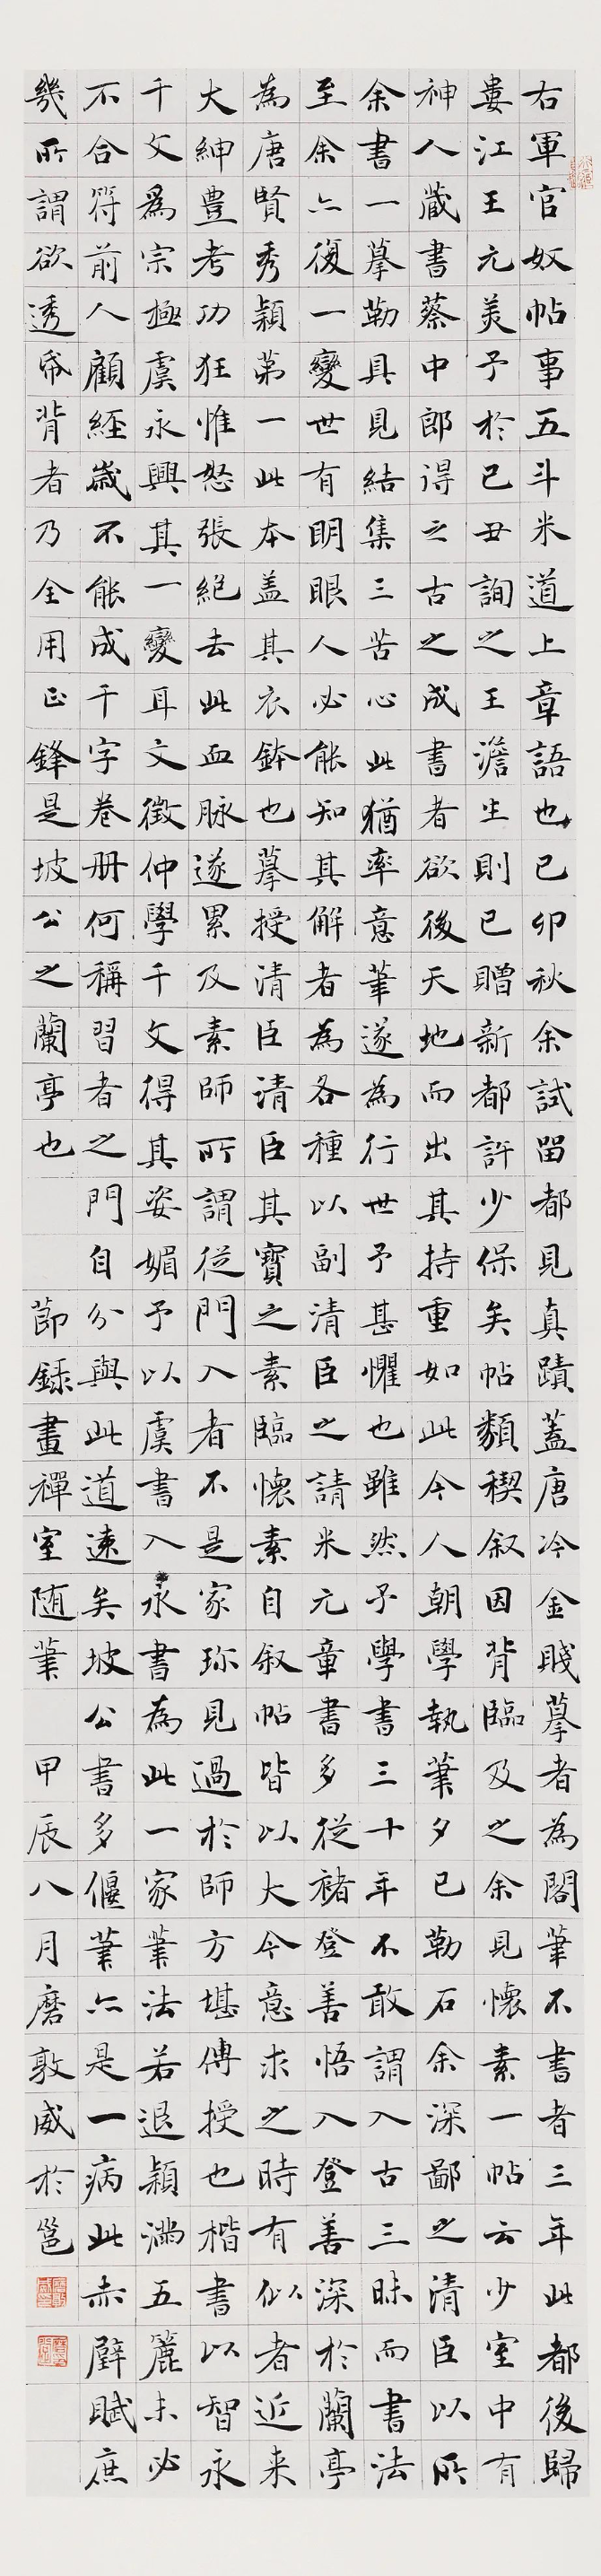 右軍官奴帖事五斗米道上章語也己卯秋余試留都見真蹟蓋唐冷金賤摹者為閣筆不書者三年此都後歸
婁江王元美予於己丑詢之王澹生則已贈新都許少保矣帖類稧叙因背臨及之余見懷素一帖云少室中有
神人藏書蔡中郎得之古之成書者欲後天地而出其持重如此今人朝學執筆夕已勒石余深鄙之清臣以所
余書一摹勒具見結集三苦心此猶率意筆遂為行世予甚懼也雖然予學書三十年不敢謂入古三昧而書法
至余亦復一變世有明眼人必能知其解者為各種以副清臣之請米元章書多從褚登善悟入登善深於蘭亭
為唐賢秀穎第一此本蓋其衣鉢也摹授清臣清臣其寶之素臨懷素自叙帖皆以大令意求之時有似者近来
大紳豊考功狂惟怒張絕去此血脉遂累及素師所謂從門入者不是家珎見過於師方堪傳授也楷書以智永
千文爲宗極虞永興其一變耳文徵仲學千文得其姿媚予以虞書入永書為此一家筆法若退穎滿五簏未必
不合符前人顧經歲不能成千字卷册何稱習者之門自分與此道遠矣坡公書多偃筆亦是一病此赤壁賦庶
幾所謂欲透帋背者乃全用正鋒是坡公之蘭亭也 節録畫禪室随筆 甲辰八月磨敦威於邕